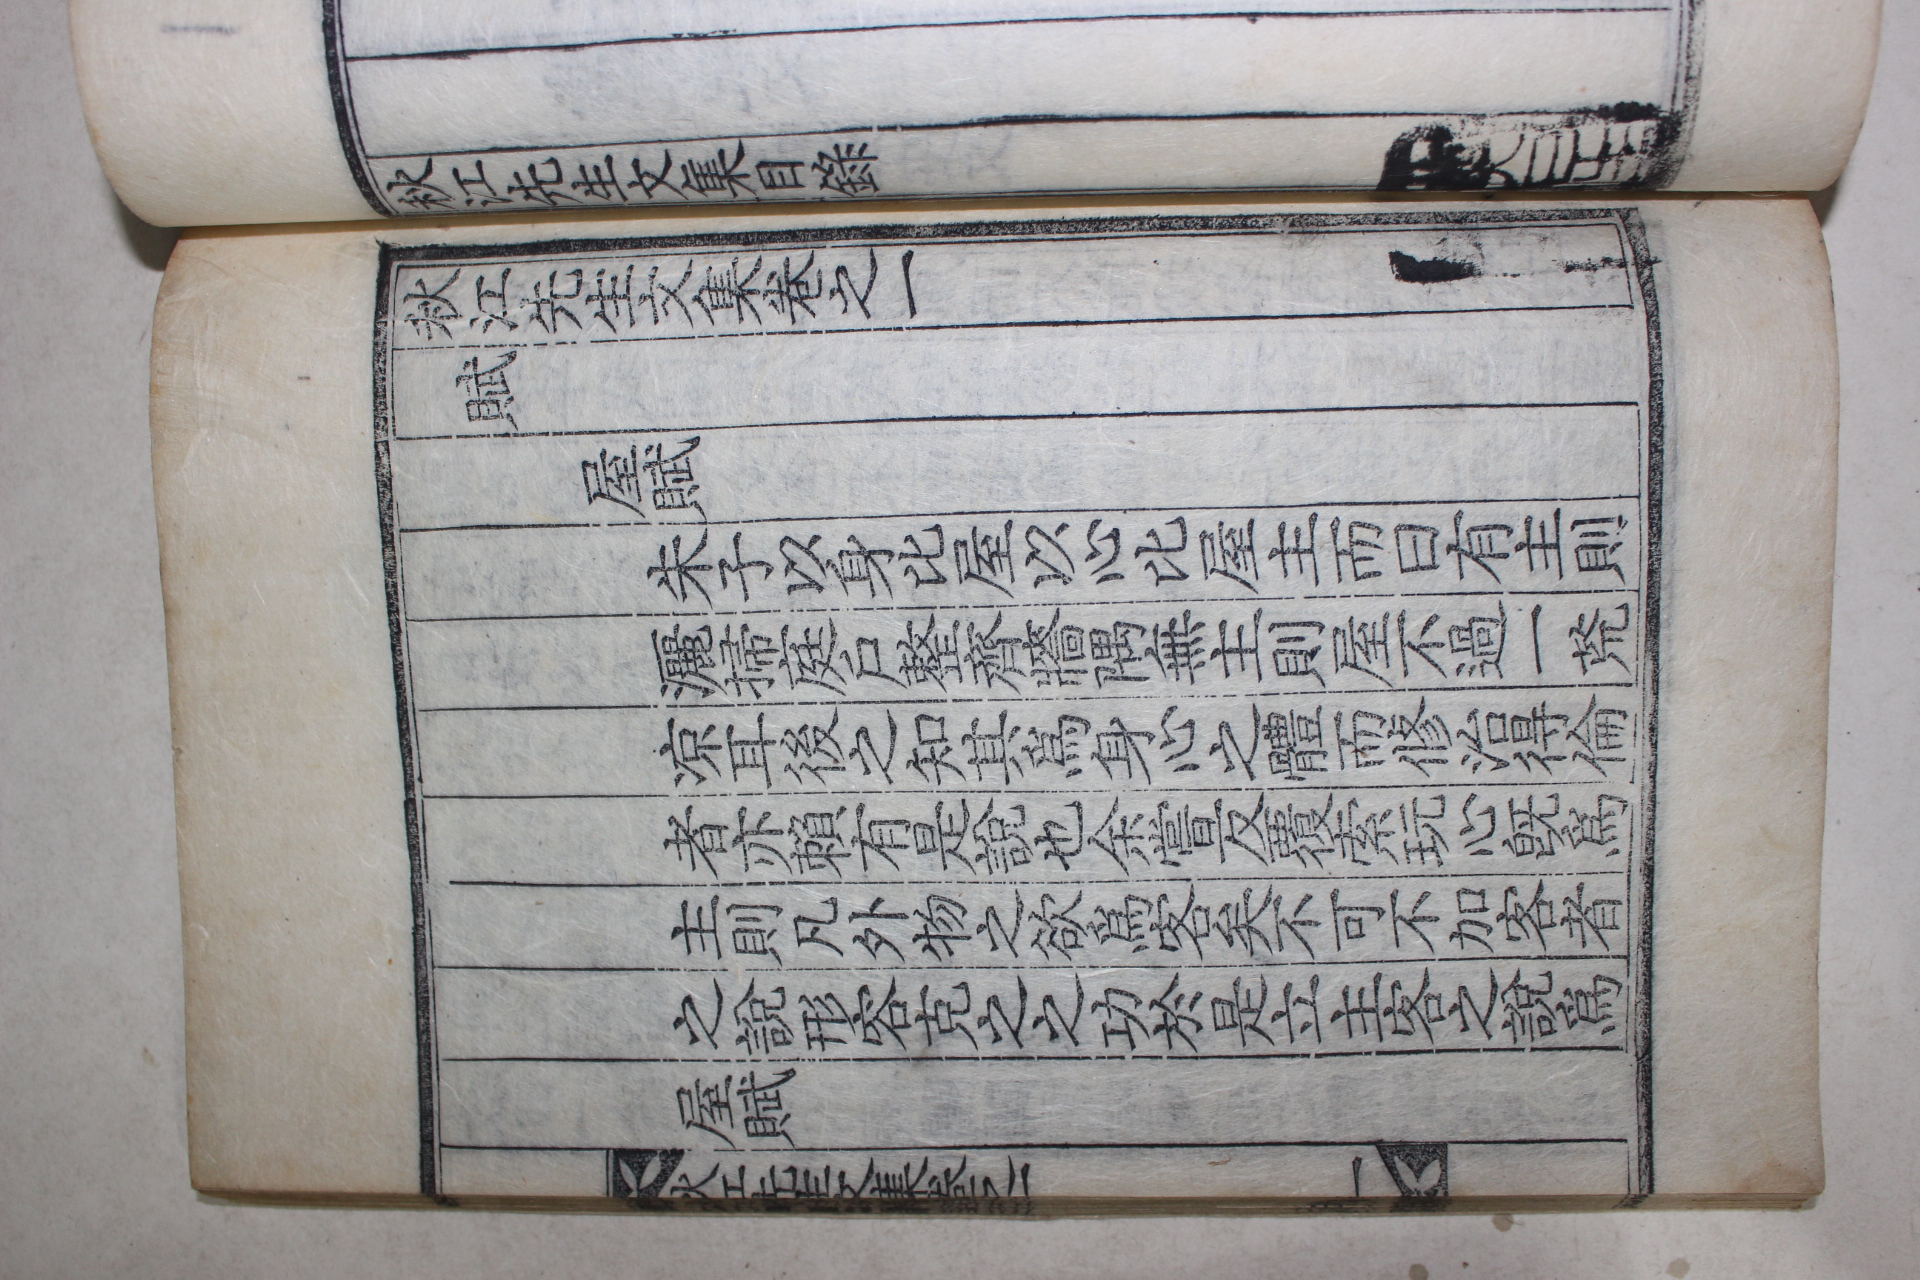 秋江先生文集目錄
秋江先生文集卷之一
賦
屋賦
朱子以身比屋以心比屋主而曰有主則
灑掃庭戶整齊牆隅無主則屋不過一荒
凉耳後之知其爲身心之體而修治得倫
者亦賴有是說也余嘗反覆索玩心旣爲
主則凡外物之欲爲客矣不可不加客者
之說形容克之之功於是立主客之說爲
屋賦
秋江先生文集卷之一
一